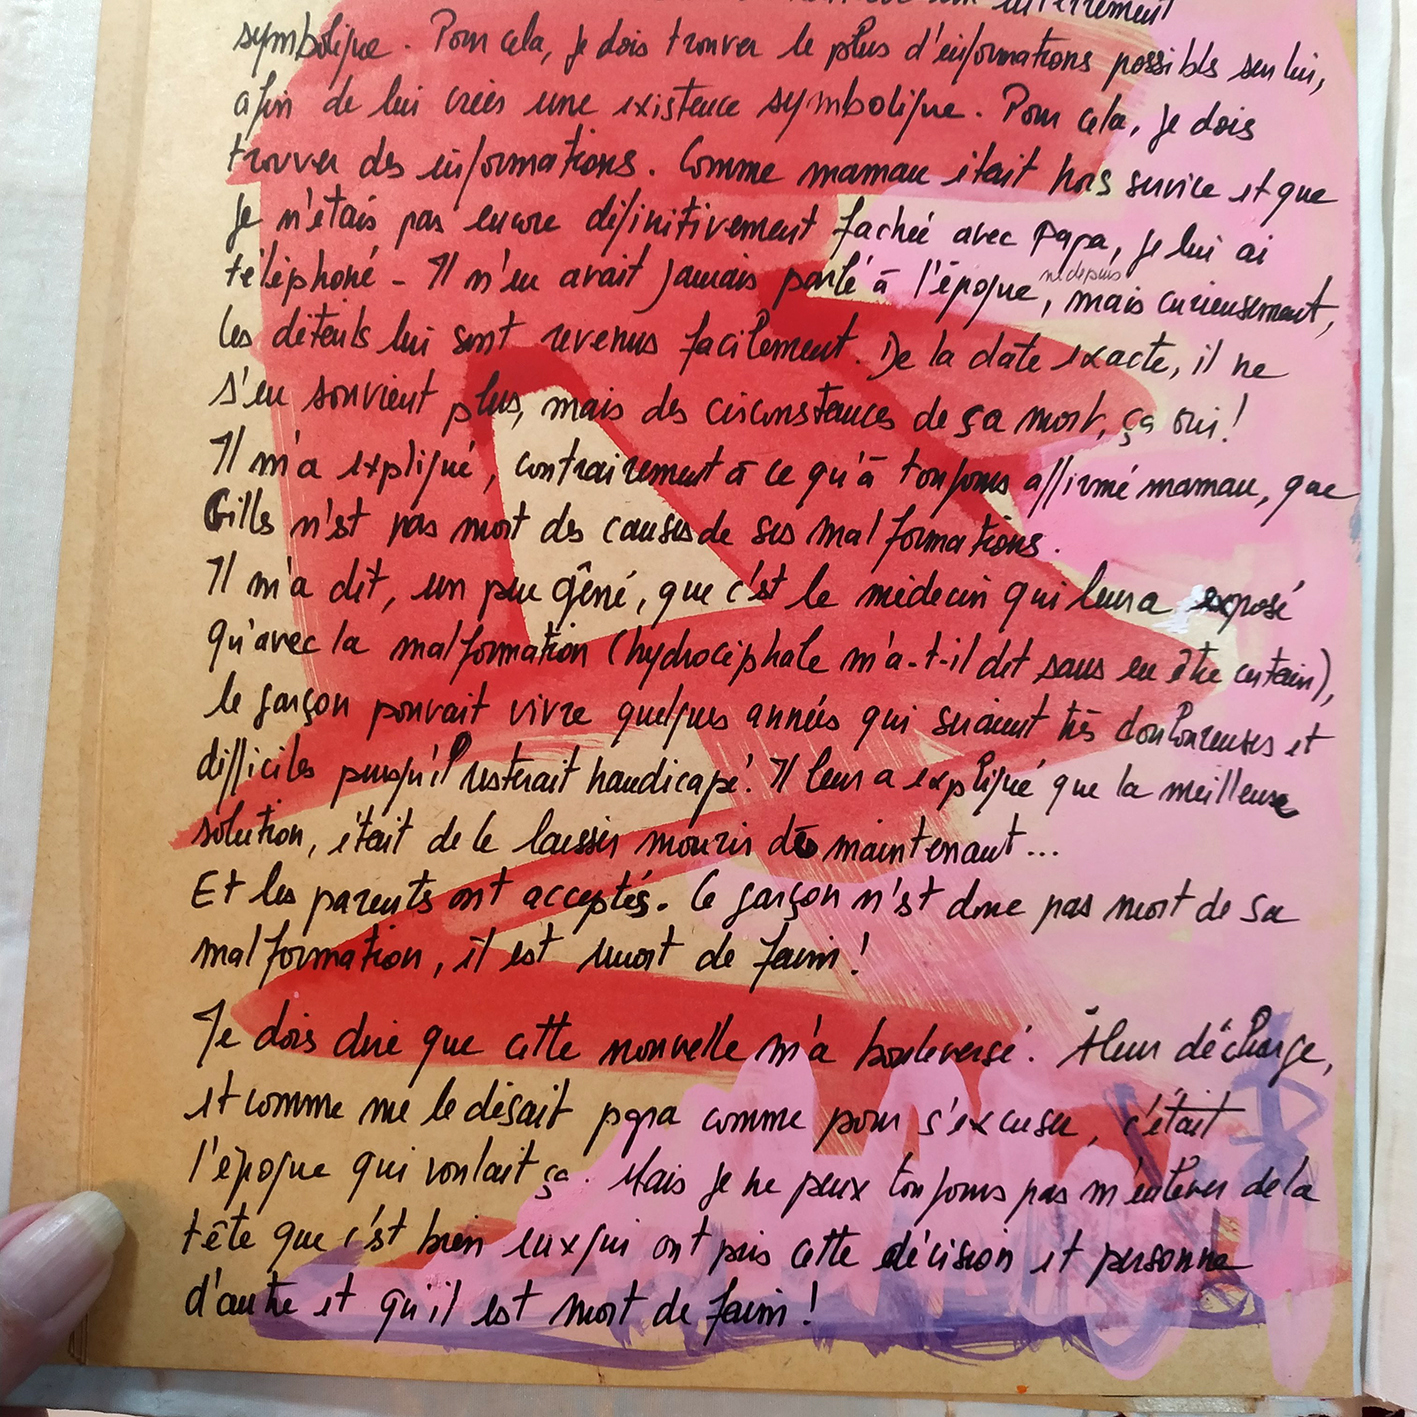 enterrement
symbolique. Pour cela, je dois trouver le plus d'informations possibles sur lui,
afin de lui créer une existence symbolique. Pour cela, je dois
trouver des informations. Comme maman était hors service et que
je n'étais pas encore définitivement fachée avec Papa, je lui ai
téléphoné - Il n'en avait jamais parlé à l'époque, ni depuis mais curieusement,
les détails lui sont revenus facilement. De la date exacte, il ne
s'en souvient plus, mais des circonstances de ça mort, ça oui!
Il m'a expliqué, contrairement à ce qu'à toujours affirmé maman, que
Gilles n'est pas mort des causes de ses malformations.
Il m'a dit, un peu gêné, que c'est le médecin qui leur a exposé
qu'avec la malformation (hydrocéphale m'a-t-il dit sans en être certain),
le garçon pouvait vivre quelques années qui seraient très douloureuses et
difficiles puisqu'il resterait handicapé. Il leur a expliqué que la meilleure
solution, était de le laisser mourir dès maintenant...
Et les parents ont acceptés. Ce garçon n'est donc pas mort de sa
malformation, il est mort de faim!
Je dois dire que cette nouvelle m'a bouleversé. À leur décharge,
et comme me le disait papa comme pour s'excuser, c'était
l'époque qui voulait ça. Mais je ne peux toujours pas m'enlever de la
tête que c'est bien eux qui ont pris cette décision et personne
d'autre et qu'il est mort de faim!